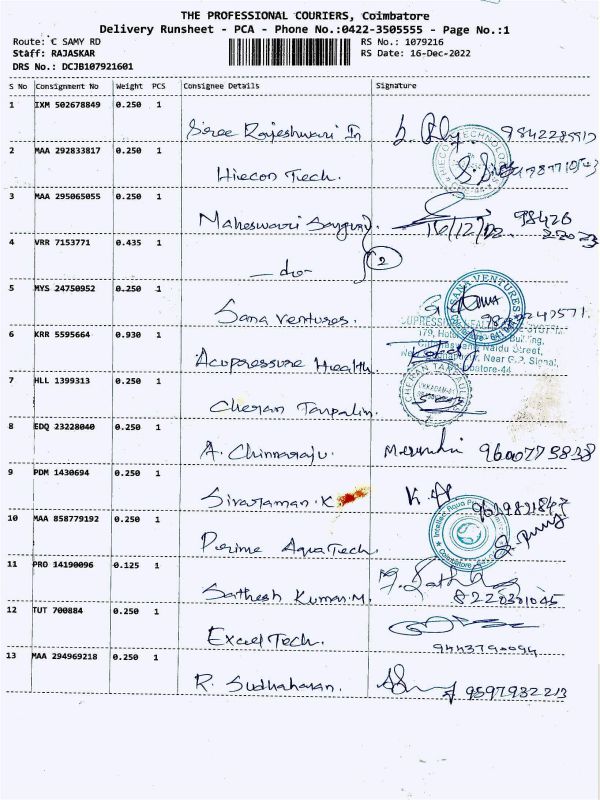 THE PROFESSIONAL COURIERS, Coimbatore
Delivery Runsheet - PCA - Phone No.:0422-3505555 - Page No.:1
Route: C SAMY RD
RS No.: 1079216
Staff: RAJASKAR
RS Date: 16-Dec-2022
DRS No.: DCJB107921601
S No Consignment No Weight PCS Consignee Details Signature
1 IXM 502678849 0.250 1
Sree Rajeshwari In
2 MAA 292833817 0.250 1
Hiecon Tech.
3 MAA 295065055 0.250 1
Maheswari
16/12/22 98426
4 VRR 7153771 0.435 1
22023
- do - 2
5 MYS 24750952 0.250 1
SANA VENTURES
Sana Ventures.
6 KRR 5595664 0.930 1
Naidu Street,
Near G.P. Signal,
Acupressure Health
7 HLL 1399313 0.250 1
Cheran Tarpalin.
8 EDQ 23228040 0.250 1
A. Chinnaraju. 9600775838
9 PDM 1430694 0.250 1
Sivaraman.K K.
9629821847
10 MAA 858779192 0.250 1
Perime Aqua Tech.
11 PRO 14190096 0.125 1
Sathesh Kumar.M. 8220381045
12 TUT 700884 0.250 1
Excel Tech.
9443790094
13 MAA 294969218 0.250 1
R. Sudhaharan. 9597932213